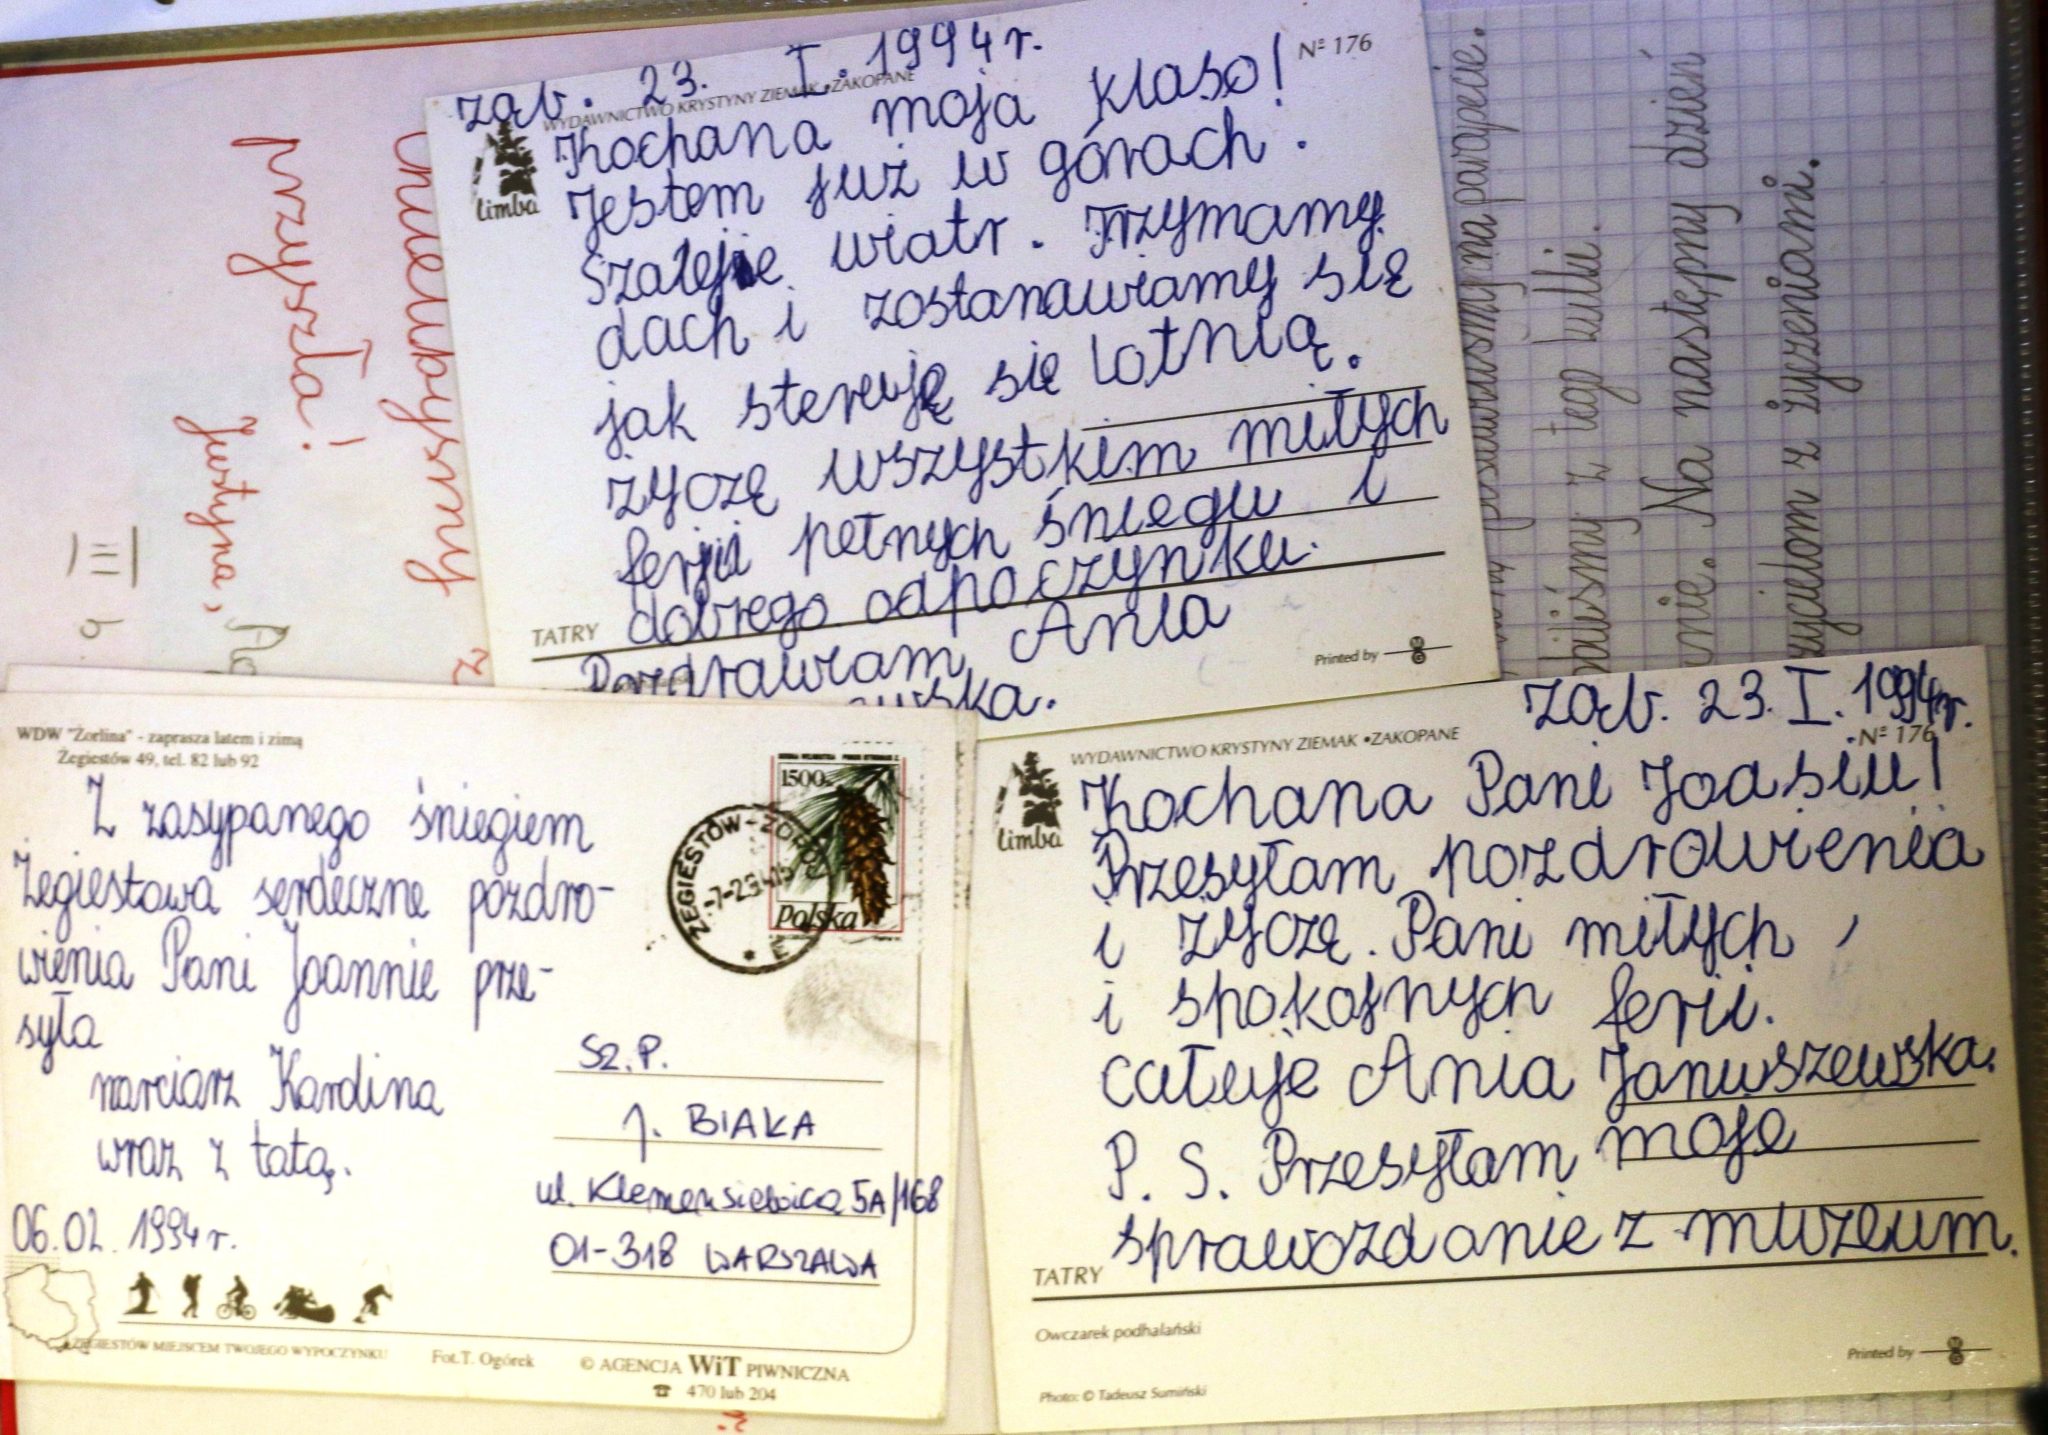 ząb. 23. I. 1994r.
WYDAWNICTWO KRYSTYNY ZIEMAK • ZAKOPANE
Nº 176
limba
Kochana moja klaso!
Jestem już w górach.
Szaleje wiatr. Trzymamy
dach i zostanawiamy się
jak steruję się lotnią.
życzę wszystkim miłych
ferii pełnych śniegu i
dobrego odpoczynku.
TATRY
Pozdrawiam Ania
Printed by
WDW "Żorlina" - zaprasza latem i zimą
Żegiestów 49, tel. 82 lub 92
Z zasypanego śniegiem
Żegiestowa serdeczne pozdro-
wienia Pani Joannie prze-
syła
narciarz Kardina
wraz z tatą.
06.02. 1994r.
1500
Polska
Sz. P.
J. BIAKA
01-318 WARSZAWA
ŻEGIESTÓW MIEJSCEM TWOJEGO WYPOCZYNKU
Fot.T. Ogórek
© AGENCJA WiT PIWNICZNA
☎ 470 lub 204
ząb. 23. I. 1994r.
WYDAWNICTWO KRYSTYNY ZIEMAK • ZAKOPANE
Nº 176
limba
Kochana Pani Joasiu!
Przesyłam pozdrowienia
i życzę. Pani miłych
i spokojnych ferii.
całuje Ania Januszewska.
P. S. Przesyłam moje
sprawozdanie z muzeum.
TATRY
Owczarek podhalański
Printed by
Photo: © Tadeusz Sumiński
przyszła!
Justyna,
na parapecie.
z tego kulki.
Na następny dzień
z życzeniami.